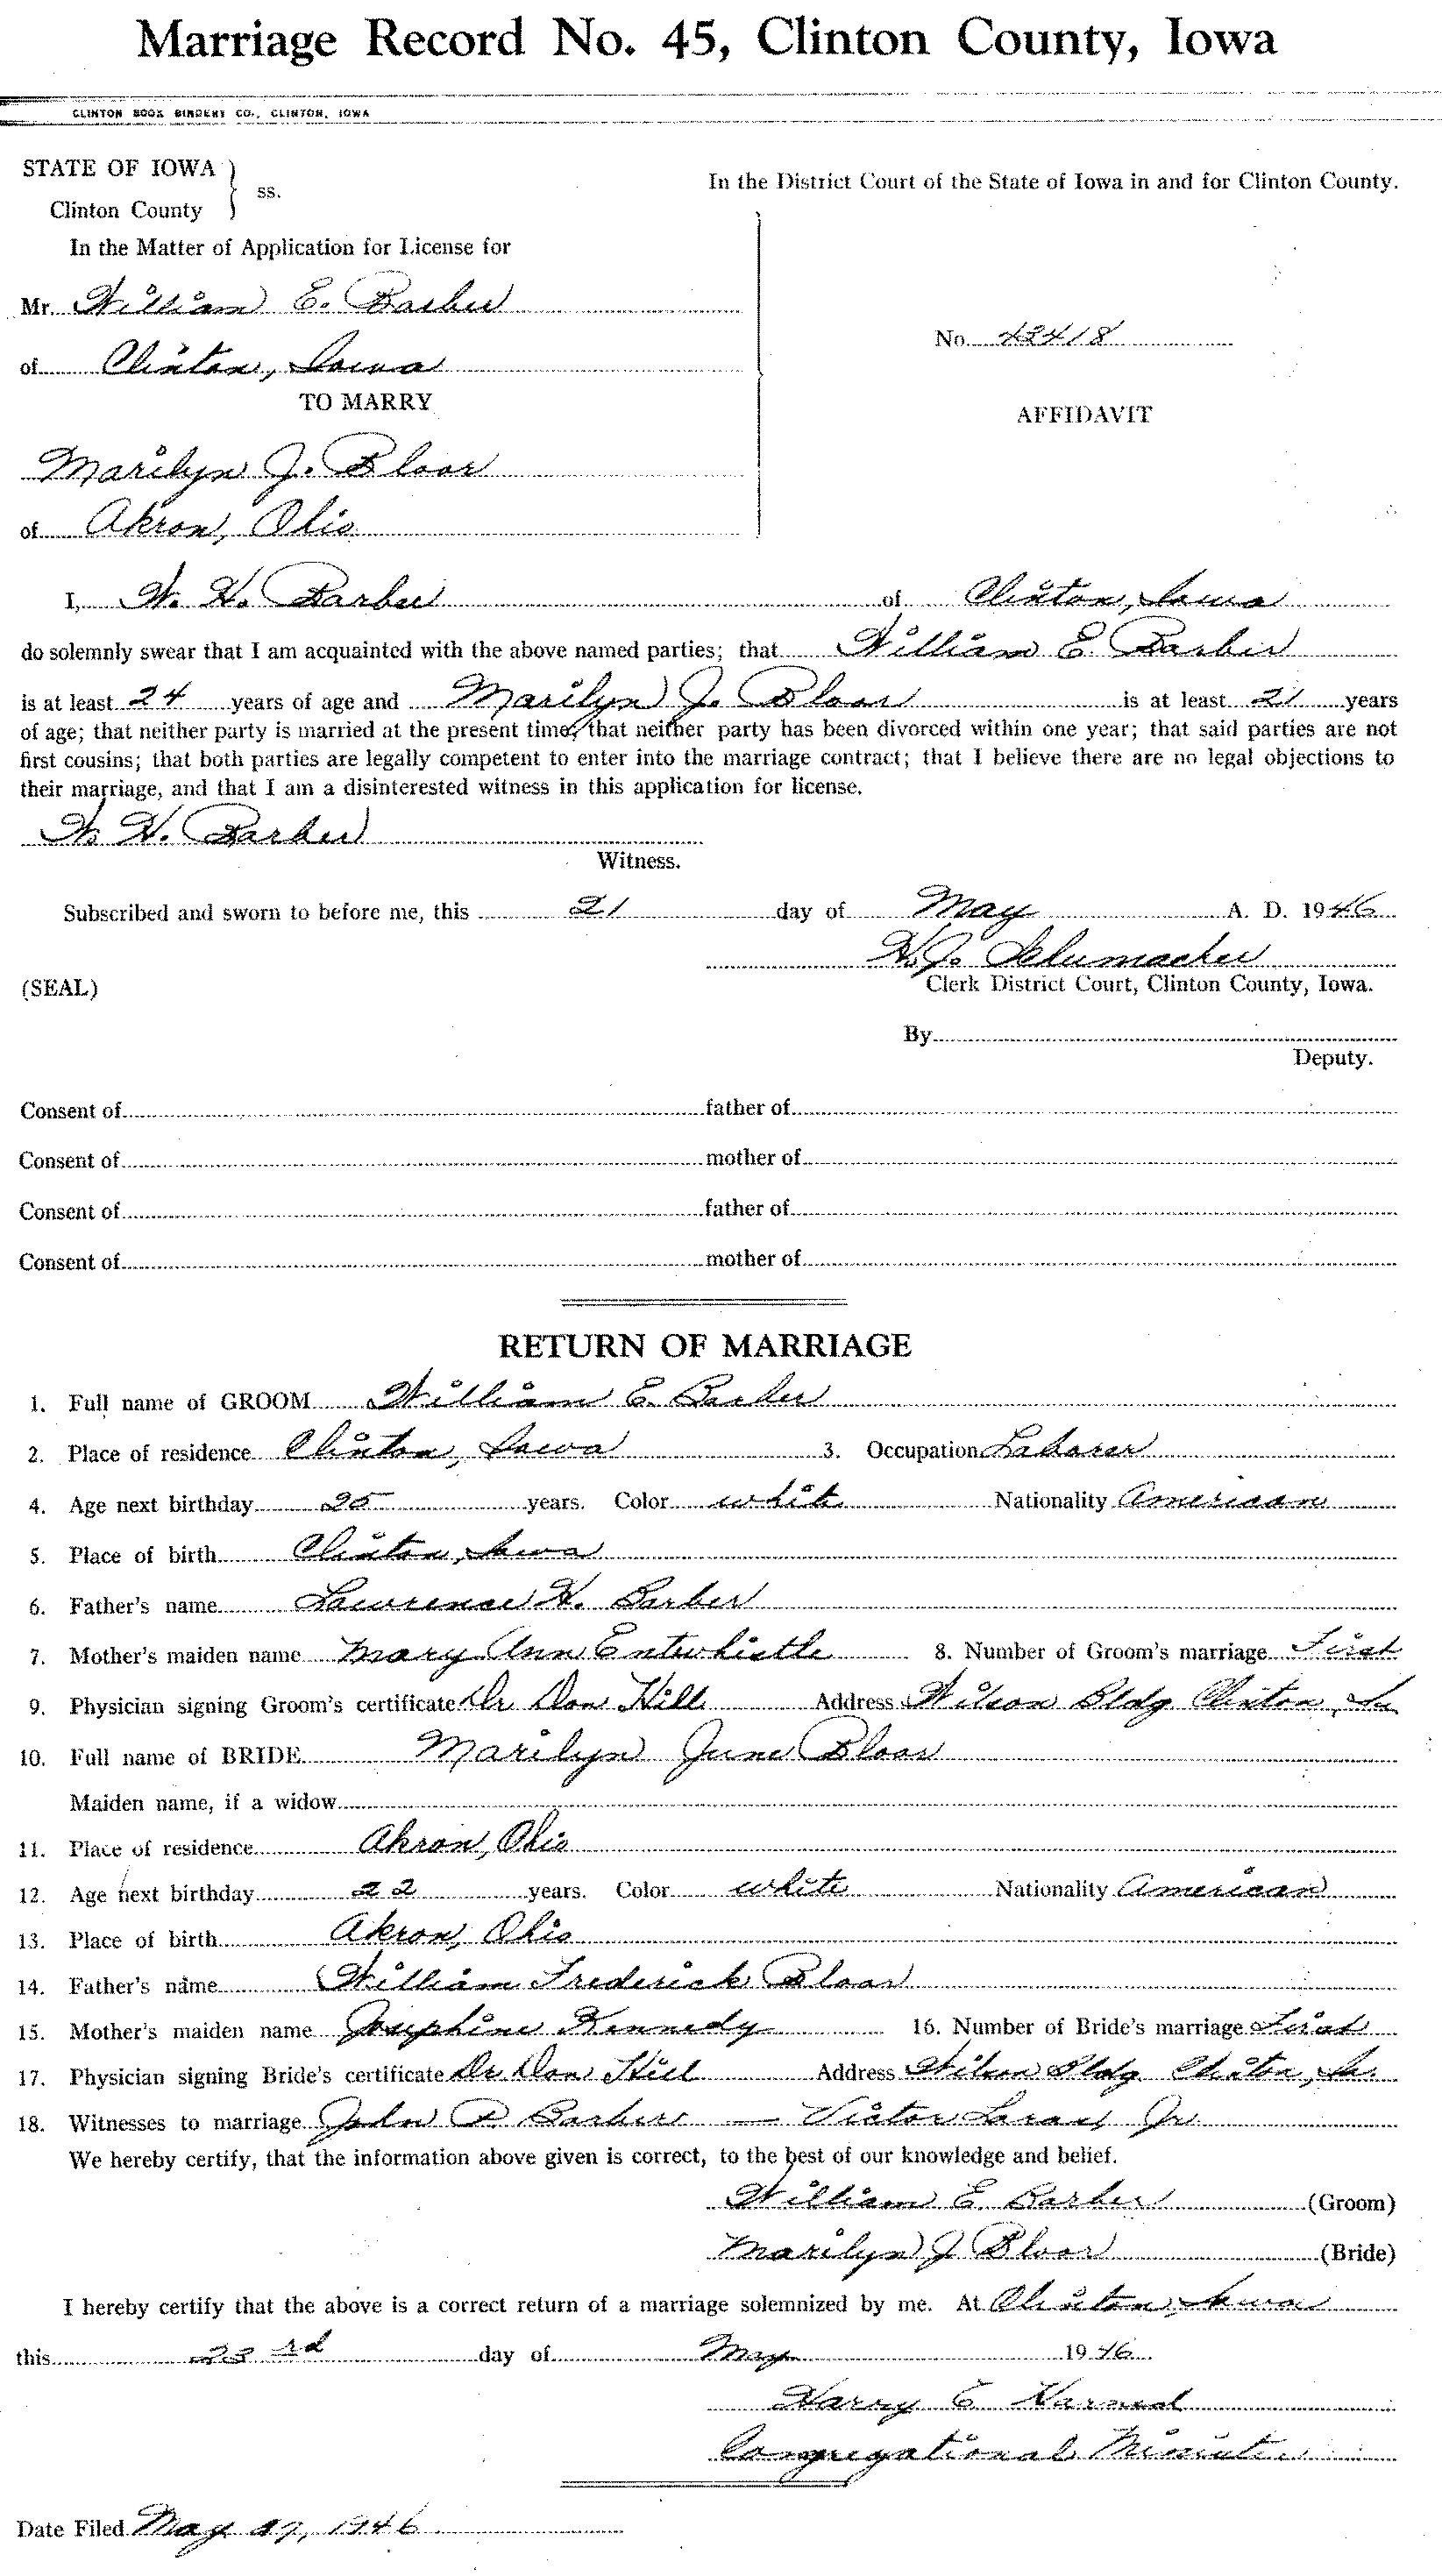 Marriage Record No. 45, Clinton County, Iowa
CLINTON BOOK BINDERY CO., CLINTON, IOWA
STATE OF IOWA } ss.
Clinton County
In the District Court of the State of Iowa in and for Clinton County.
In the Matter of Application for License for
Mr. William E. Barber
of Clinton, Iowa
No. 42418
TO MARRY
AFFIDAVIT
Marilyn J. Bloor
of Akron, Ohio
I, W. H. Barber of Clinton, Iowa
do solemnly swear that I am acquainted with the above named parties; that William E Barber
is at least 24 years of age and Marilyn J. Bloor is at least 21 years
of age; that neither party is married at the present time; that neither party has been divorced within one year; that said parties are not
first cousins; that both parties are legally competent to enter into the marriage contract; that I believe there are no legal objections to
their marriage, and that I am a disinterested witness in this application for license.
W. H. Barber
Witness.
Subscribed and sworn to before me, this 21 day of May A. D. 1946
H. J. Schumacher
(SEAL) Clerk District Court, Clinton County, Iowa.
By
Deputy.
Consent of father of
Consent of mother of
Consent of father of
Consent of mother of
RETURN OF MARRIAGE
1. Full name of GROOM William E. Barber
2. Place of residence Clinton, Iowa 3. Occupation Laborer
4. Age next birthday 25 years. Color white Nationality American
5. Place of birth Clinton, Iowa
6. Father's name Lawrence H. Barber
7. Mother's maiden name Mary Ann Entwhistle 8. Number of Groom's marriage First
9. Physician signing Groom's certificate Dr Don Hill Address Wilson Bldg Clinton, Ia
10. Full name of BRIDE Marilyn June Bloor
Maiden name, if a widow
11. Place of residence Akron, Ohio
12. Age next birthday 22 years. Color white Nationality American
13. Place of birth Akron, Ohio
14. Father's name William Frederick Bloor
15. Mother's maiden name Josephine Kennedy 16. Number of Bride's marriage First
17. Physician signing Bride's certificate Dr. Don Hill Address Wilson Bldg Clinton, Ia.
18. Witnesses to marriage John P. Barber — Victor Jr
We hereby certify, that the information above given is correct, to the best of our knowledge and belief.
William E. Barber (Groom)
Marilyn J Bloor (Bride)
I hereby certify that the above is a correct return of a marriage solemnized by me. At Clinton, Iowa
this 23rd day of May 1946
Harry E Harned
Congregational Minister
Date Filed May 27, 1946